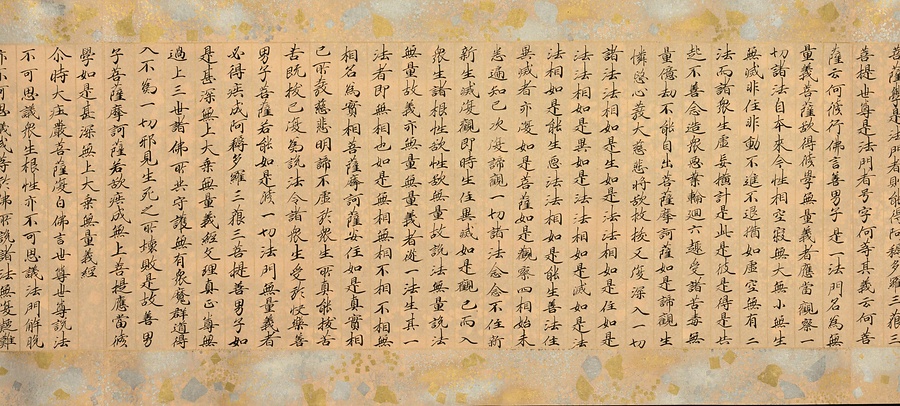 菩薩學是法門者則能得阿耨多羅三藐三
菩提世尊是法門者号字何等其義云何菩
薩云何修行佛言善男子是一法門名為無
量義菩薩欲得修學無量義者應當觀察一
切諸法自本來今性相空寂無大無小無生
無滅非住非動不進不退猶如虛空無有二
法而諸眾生虛妄橫計是此是彼是得是失
起不善念造眾惡業輪迴六趣受諸苦毒無
量億劫不能自出菩薩摩訶薩如是諦觀生
憐愍心發大慈悲將欲救拔又復深入一切
諸法法相如是生如是法法相如是住如是
法法相如是異如是法法相如是滅如是法
法相如是能生惡法法相如是能生善法住
異滅者亦復如是菩薩如是觀察四相始末
悉遍知已次復諦觀一切諸法念念不住新
新生滅復觀即時生住異滅如是觀已而入
眾生諸根性欲性欲無量故說法無量說法
無量故義亦無量無量義者從一法生其一
法者即無相也如是無相無相不相不相無
相名為實相菩薩摩訶薩安住如是真實相
已所發慈悲明諦不虛於眾生所真能拔苦
苦既拔已復為說法令諸眾生受於快樂善
男子菩薩若能如是修一切法門無量義者
必得疾成阿耨多羅三藐三菩提善男子如
是甚深無上大乘無量義經文理真正尊無
過上三世諸佛所共守護無有眾魔群道得
入不為一切邪見生死之所壞敗是故善男
子菩薩摩訶薩若欲疾成無上菩提應當修
學如是甚深無上大乘無量義經
尒時大莊嚴菩薩復白佛言世尊世尊說法
不可思議眾生根性亦不可思議法門解脫
亦不可思議我等於佛所說諸法無復疑難